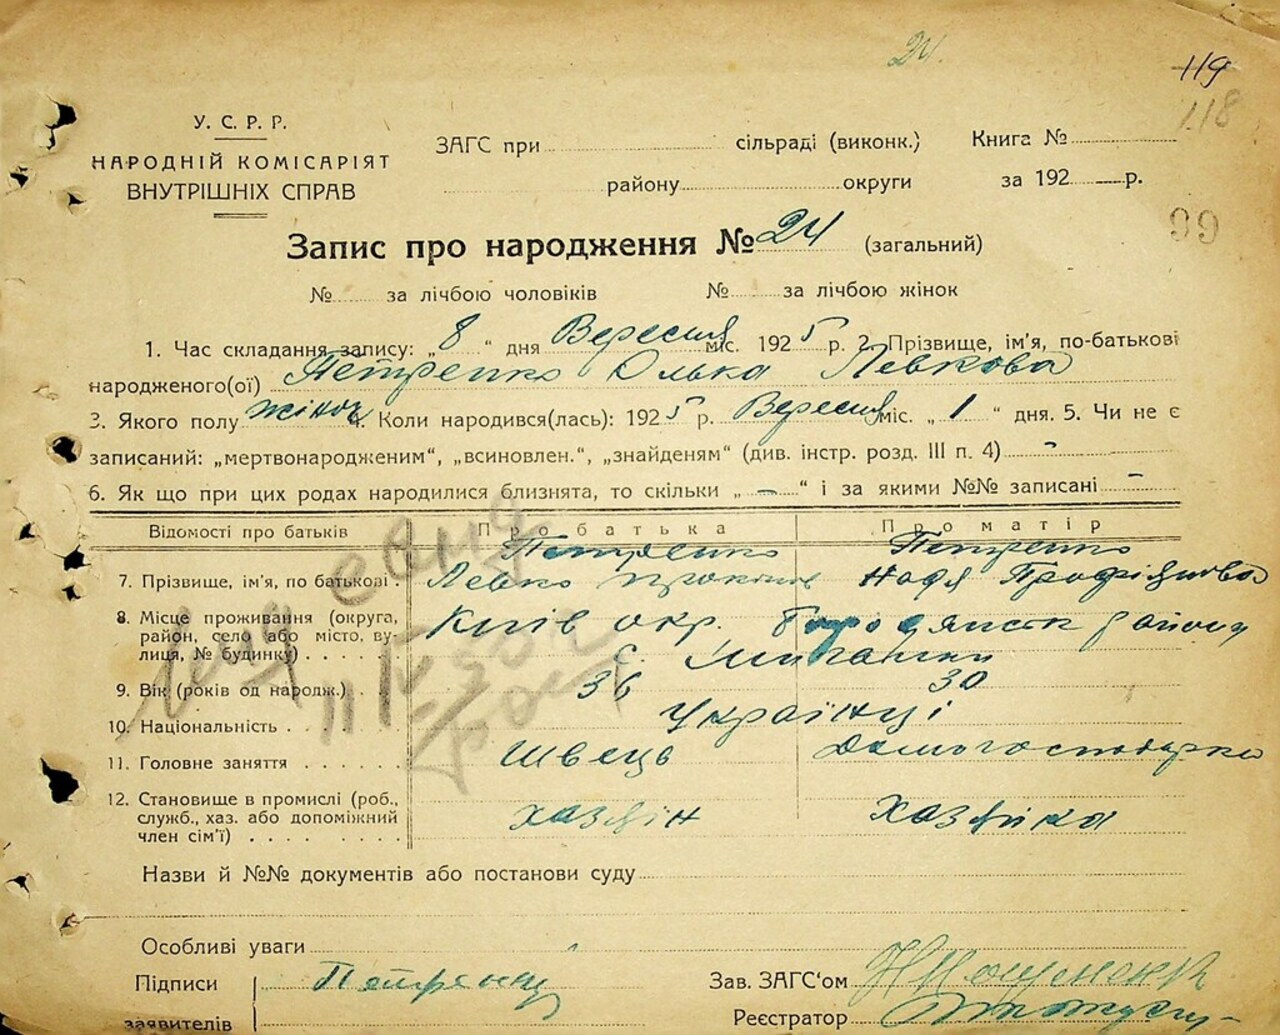 24.
119
118
У. С. Р. Р.
НАРОДНІЙ КОМІСАРІЯТ
ВНУТРІШНІХ СПРАВ
ЗАГС при сільраді (виконк.)
району округи
Книга №
за 192 р.
99
Запис про народження № 24 (загальний)
№ за лічбою чоловіків № за лічбою жінок
1. Час складання запису: „ 8 “ дня Вересня міс. 1925 р. 2. Прізвище, ім'я, по-батькові
народженого(ої) Петренко Олька Левкова
3. Якого полу жіноч 4. Коли народився(лась): 1925 р. Вересня міс. „ 1 “ дня. 5. Чи не є
записаний: „мертвонародженим“, „всиновлен.“, „знайденям“ (див. інстр. розд. III п. 4) -
6. Як що при цих родах народилися близнята, то скільки „ — “ і за якими №№ записані -
Відомості про батьків Про батька Про матір
Петренко Петренко
7. Прізвище, ім'я, по батькові. Левко Надя
8. Місце проживання (округа, район, село або місто, вулиця, № будинку) Київ окр. Бородянськ району
с.
9. Вік (років од народж.) 36 30
10. Національність Українці
11. Головне заняття Швець Домогосподарка
12. Становище в промислі (роб., служб., хаз. або допоміжний член сім'ї) хазяін хазяйка
Назви й №№ документів або постанови суду
Особливі уваги
Підписи
заявителів
Петренко
Зав. ЗАГС‘ом
Реєстратор